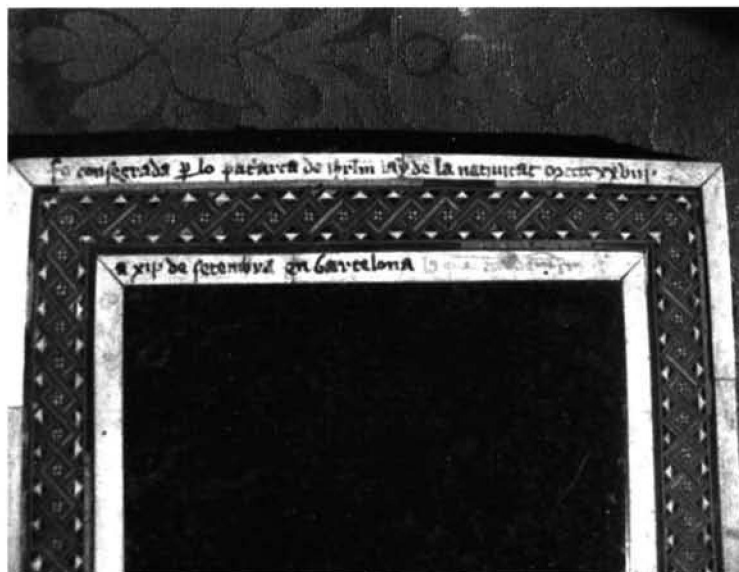 fo consegrada p̱ lo pat'arca de ihrl̄m lay de la nativitat mccccxxviiii
a xii de setembra en barcelona